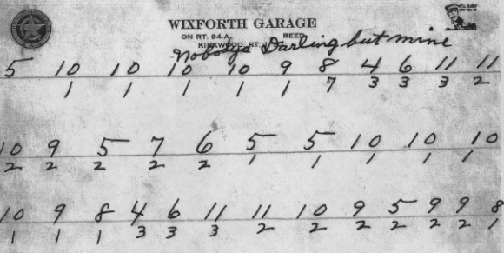 WIXFORTH GARAGE
ON RT. 64-A. REED
Nobodys Darling but mine
5 10 10 10 10 9 8 4 6 11 11
1 1 1 1 1 7 3 3 3 2
10 9 5 7 6 5 5 10 10 10
2 2 2 2 2 1 1 1 1 1
10 9 8 4 6 11 11 10 9 5 9 9 8
1 1 1 3 3 3 2 2 2 2 2 2 1